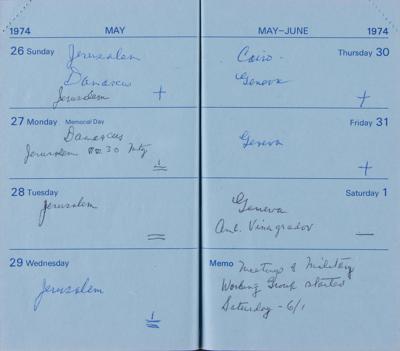 1974 MAY
26 Sunday Jerusalem
Damascus
Jerusalem +
27 Monday Memorial Day
Damascus
Jerusalem 8:30 Mtg
1
28 Tuesday
Jerusalem
29 Wednesday
Jerusalem
1
MAY–JUNE 1974
Cairo - Thursday 30
Geneva
+
Friday 31
Geneva
+
Saturday 1
Geneva
Amb. Vinagradov
Memo Meetings of Military
Working Group started
Saturday - 6/1